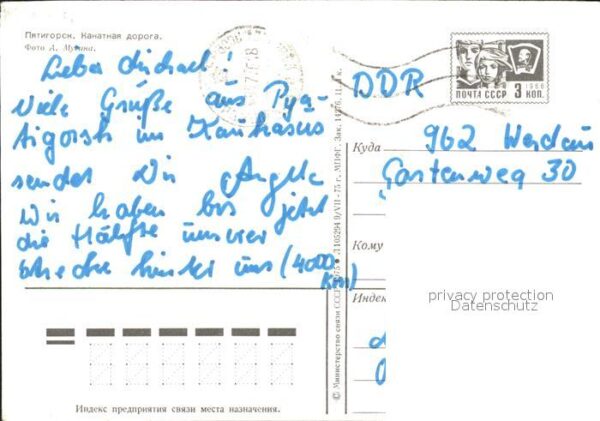 Пятигорск. Канатная дорога.
Фото А. Мухина.
Lieber Michael!
Viele Grüße aus Pya-
tigorsk im Kaukasus
sendet Dir Angela
Wir haben bis jetzt
die Hälfte unserer
Strecke hinter uns (4000
km)
DDR
ПОЧТА СССР 3 КОП.
1966
Куда 962 Werdau
Gartenweg 30
Кому
Индек
privacy protection
Datenschutz
© Министерство связи СССР
МПФГ. Зак. 14376, 11.
Индекс предприятия связи места назначения.